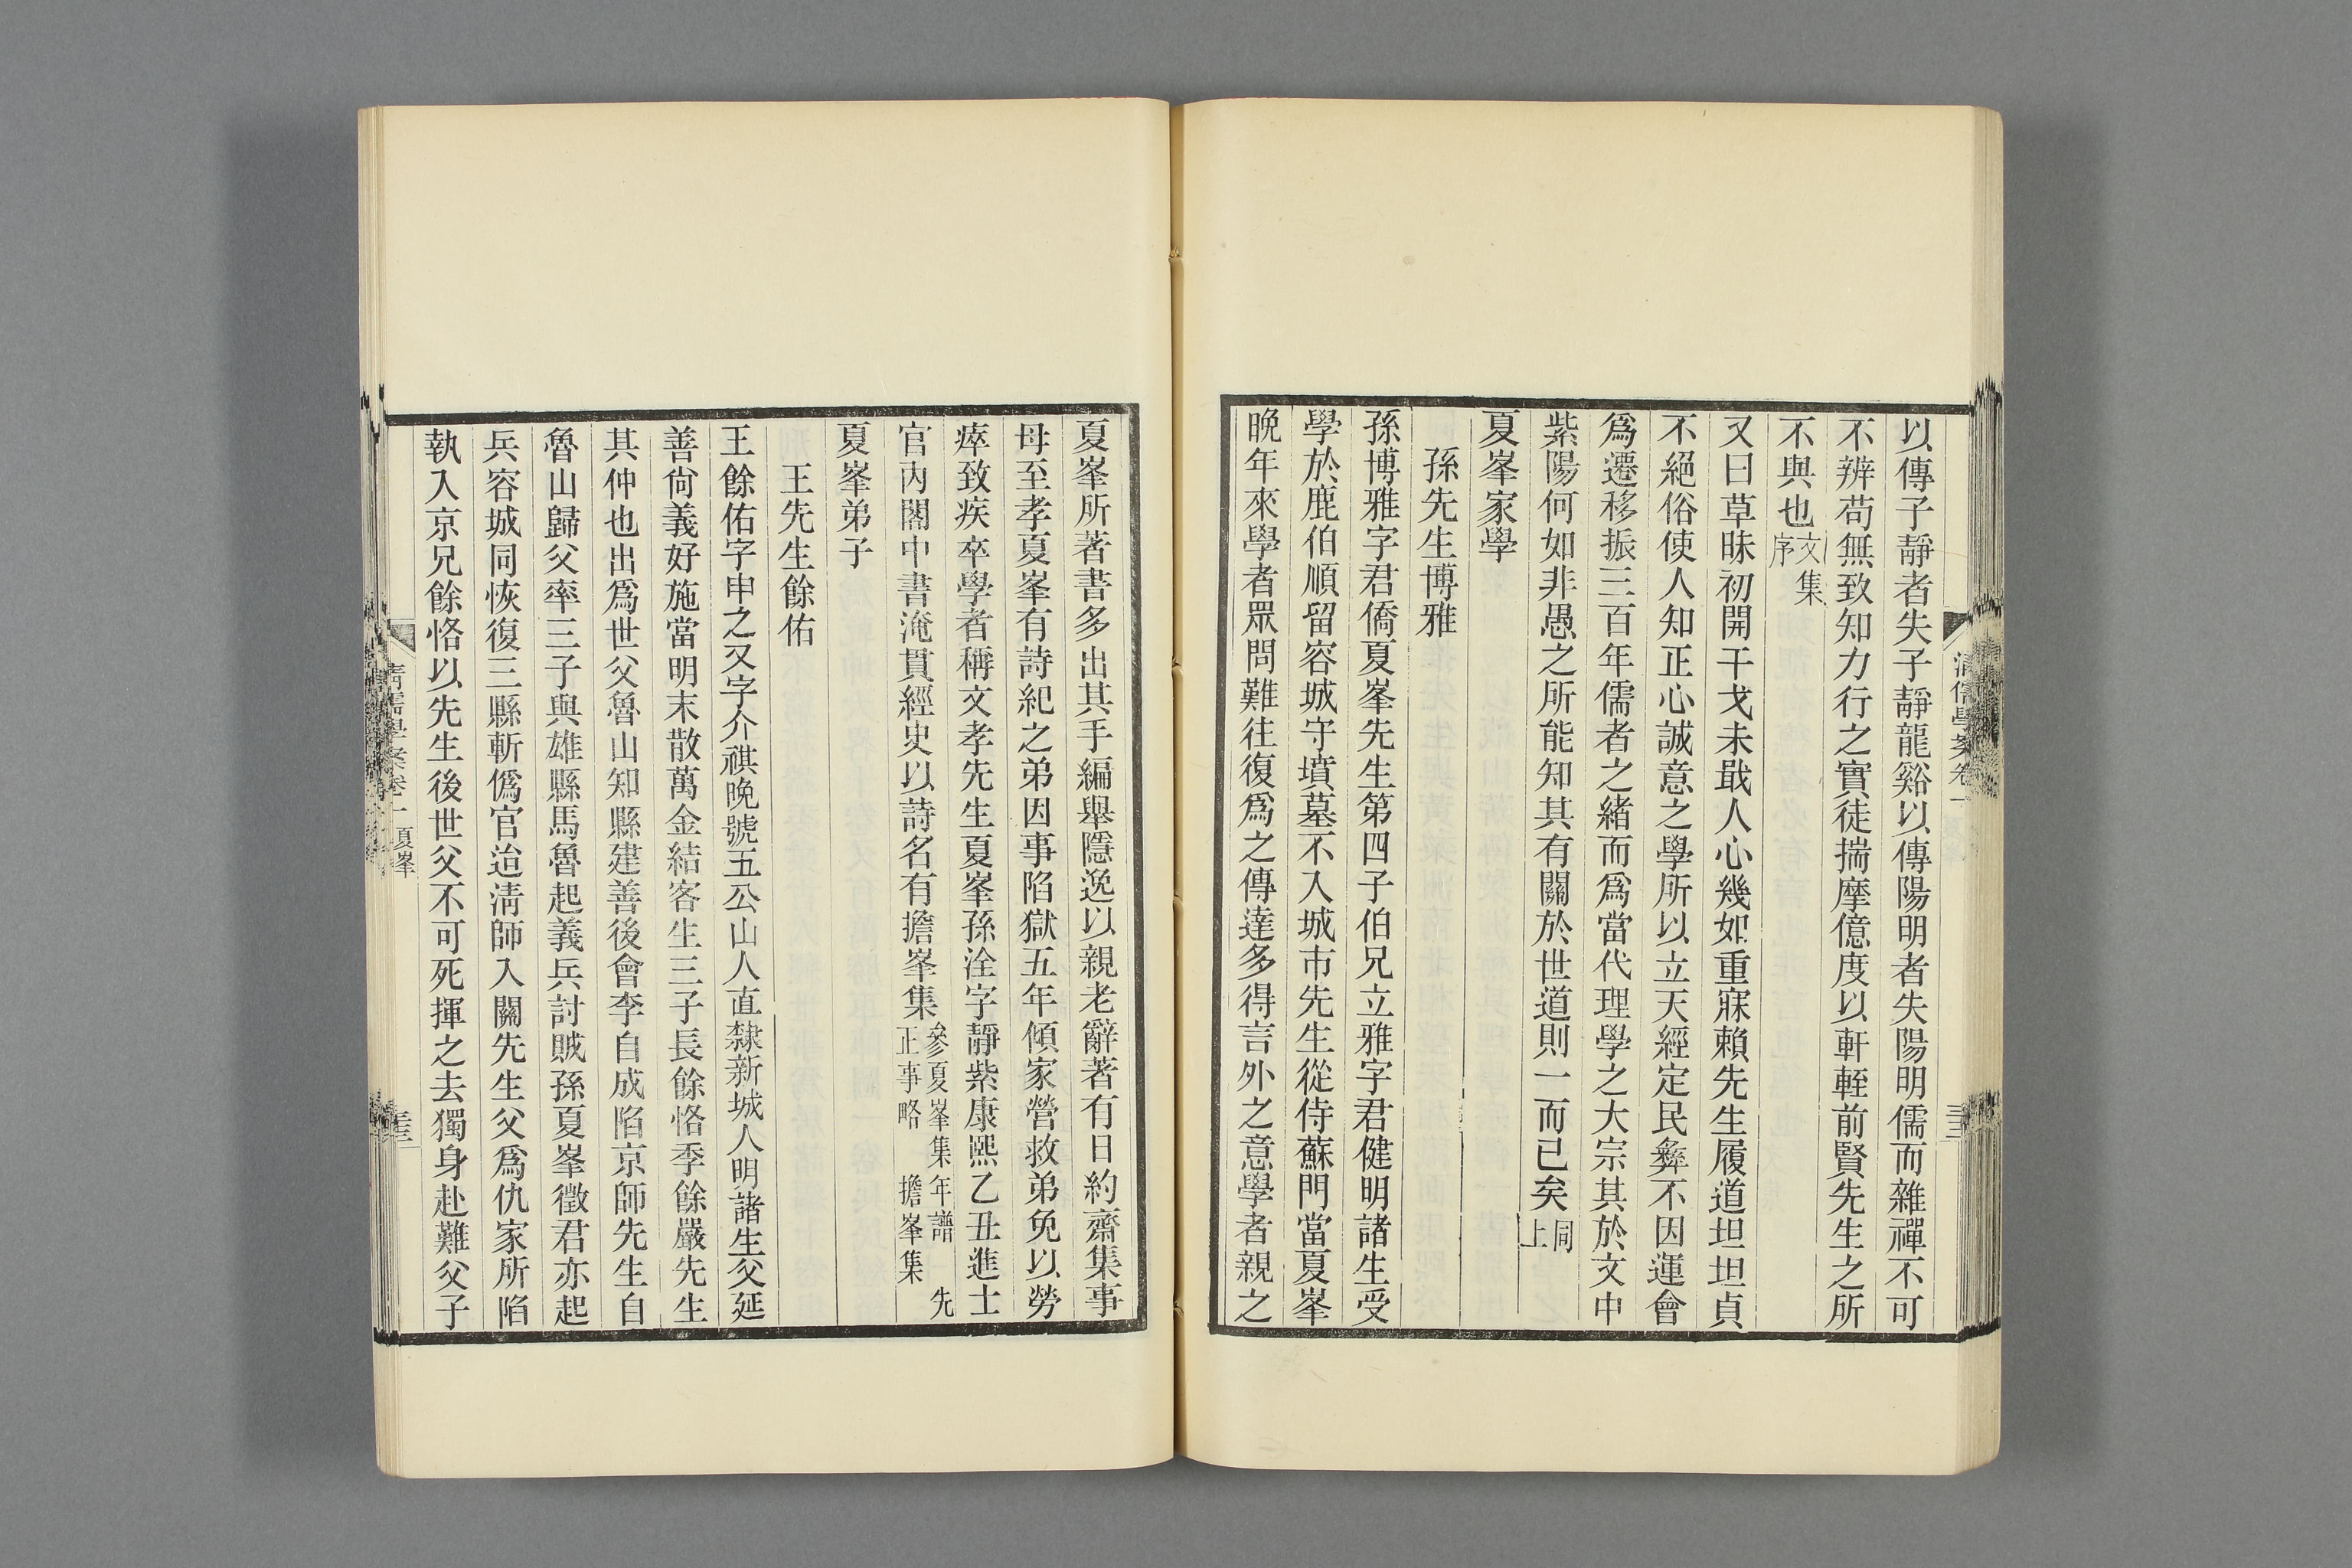 以傳子靜者失子靜龍谿以傳陽明者失陽明儒而雜禪不可
不辨苟無致知力行之實徒揣摩億度以軒輊前賢先生之所
不與也文集序
又曰草昧初開干戈未戢人心幾如重寐賴先生履道坦坦貞
不絕俗使人知正心誠意之學所以立天經定民彝不因運會
爲遷移振三百年儒者之緒而爲當代理學之大宗其於文中
紫陽何如非愚之所能知其有關於世道則一而已矣同上
夏峯家學
孫先生博雅
孫博雅字君僑夏峯先生第四子伯兄立雅字君健明諸生受
學於鹿伯順留容城守墳墓不入城市先生從侍蘇門當夏峯
晚年來學者眾問難往復爲之傳達多得言外之意學者親之
清儒學案卷一
夏峯所著書多出其手編舉隱逸以親老辭著有日約齋集事
母至孝夏峯有詩紀之弟因事陷獄五年傾家營救弟免以勞
瘁致疾卒學者稱文孝先生夏峯孫淦字靜紫康熙乙丑進士
官內閣中書淹貫經史以詩名有擔峯集參夏峯集 年譜 先正事略 擔峯集
夏峯弟子
王先生餘佑
王餘佑字申之又字介祺晚號五公山人直隸新城人明諸生父延
善尙義好施當明末散萬金結客生三子長餘恪季餘嚴先生
其仲也出爲世父魯山知縣建善後會李自成陷京師先生自
魯山歸父率三子與雄縣馬魯起義兵討賊孫夏峯徵君亦起
兵容城同恢復三縣斬僞官迨淸師入關先生父爲仇家所陷
執入京兄餘恪以先生後世父不可死揮之去獨身赴難父子
清儒學案卷一 夏峯